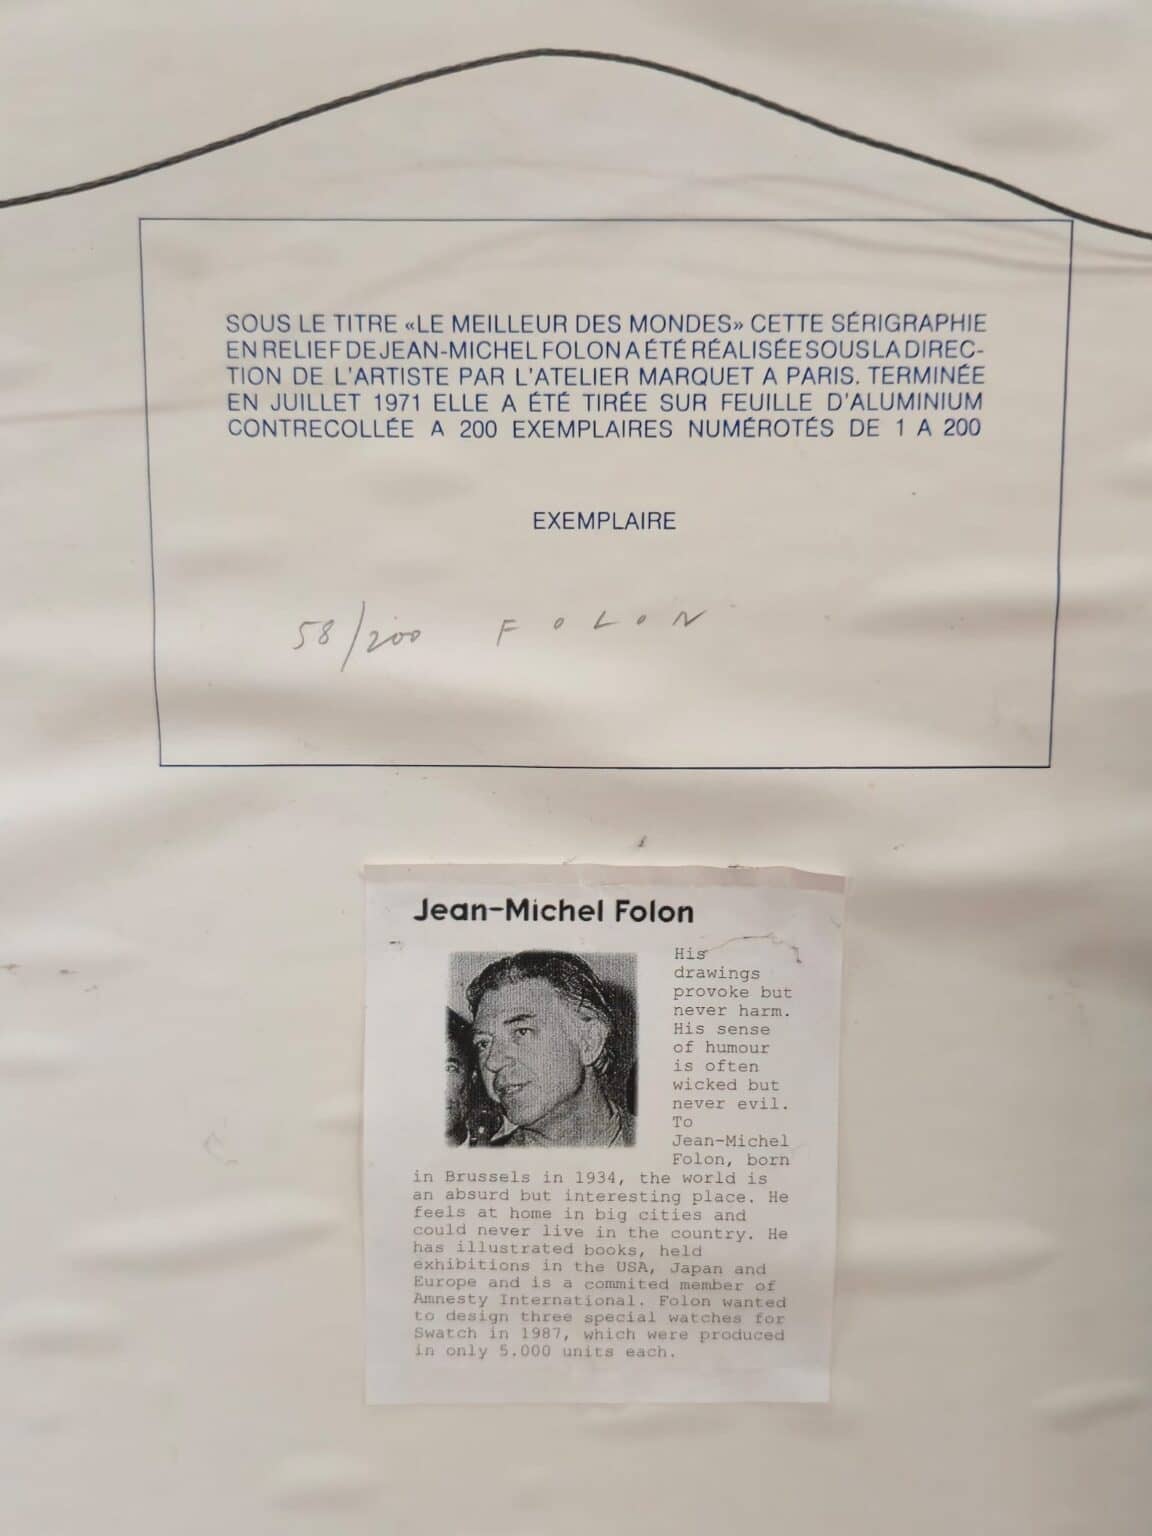 SOUS LE TITRE «LE MEILLEUR DES MONDES» CETTE SÉRIGRAPHIE
EN RELIEF DE JEAN-MICHEL FOLON A ÉTÉ RÉALISÉE SOUS LA DIREC-
TION DE L'ARTISTE PAR L'ATELIER MARQUET A PARIS. TERMINÉE
EN JUILLET 1971 ELLE A ÉTÉ TIRÉE SUR FEUILLE D'ALUMINIUM
CONTRECOLLÉE A 200 EXEMPLAIRES NUMÉROTÉS DE 1 A 200
EXEMPLAIRE
58/200 FOLON
Jean-Michel Folon
His
drawings
provoke but
never harm.
His sense
of humour
is often
wicked but
never evil.
To
Jean-Michel
Folon, born
in Brussels in 1934, the world is
an absurd but interesting place. He
feels at home in big cities and
could never live in the country. He
has illustrated books, held
exhibitions in the USA, Japan and
Europe and is a commited member of
Amnesty International. Folon wanted
to design three special watches for
Swatch in 1987, which were produced
in only 5.000 units each.